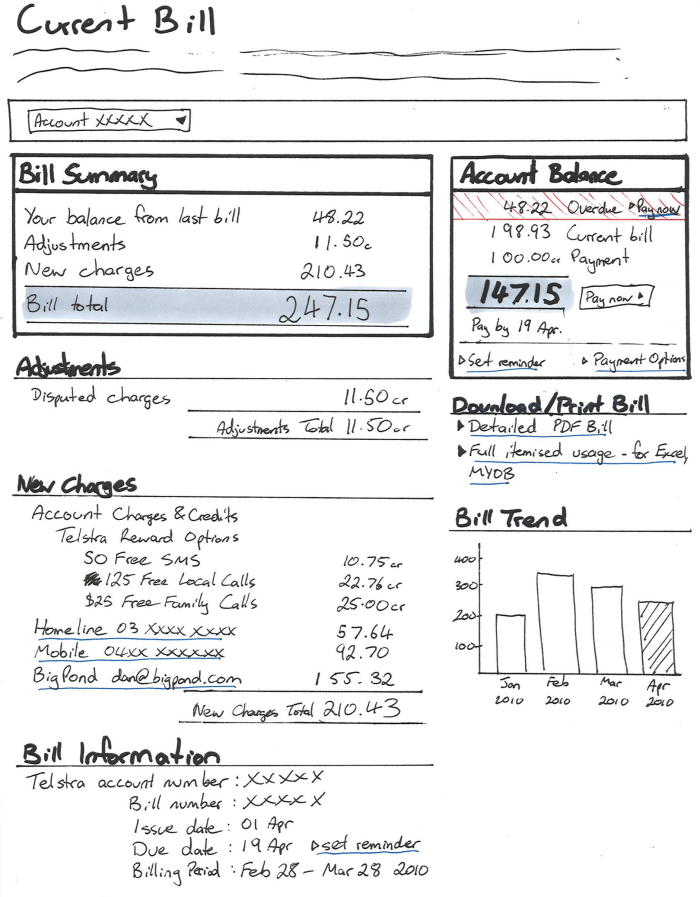 Current Bill
Account XXXXX
Bill Summary
Your balance from last bill 48.22
Adjustments 11.50c
New charges 210.43
Bill total 247.15
Adjustments
Disputed charges 11.50cr
Adjustments Total 11.50cr
New Charges
Account Charges & Credits
Telstra Reward Options
50 Free SMS 10.75cr
125 Free Local Calls 22.76cr
$25 Free Family Calls 25.00cr
Homeline 03 XXXX XXXX 57.64
Mobile 04XX XXXXXX 92.70
BigPond dan@bigpond.com 155.32
New Charges Total 210.43
Bill Information
Telstra account number : XXXXX
Bill number : XXXXX
Issue date : 01 Apr
Due date : 19 Apr set reminder
Billing Period : Feb 28 – Mar 28 2010
Account Balance
48.22 Overdue Pay now
198.93 Current bill
100.00cr Payment
147.15 Pay now
Pay by 19 Apr.
Set reminder Payment Options
Download/Print Bill
Detailed PDF Bill
Full itemised usage - for Excel,
MYOB
Bill Trend
400
300
200
100
Jan Feb Mar Apr
2010 2010 2010 2010